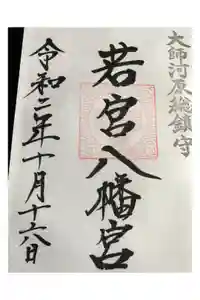 大師河原総鎮守
若宮八幡宮
令和二年十月十六日